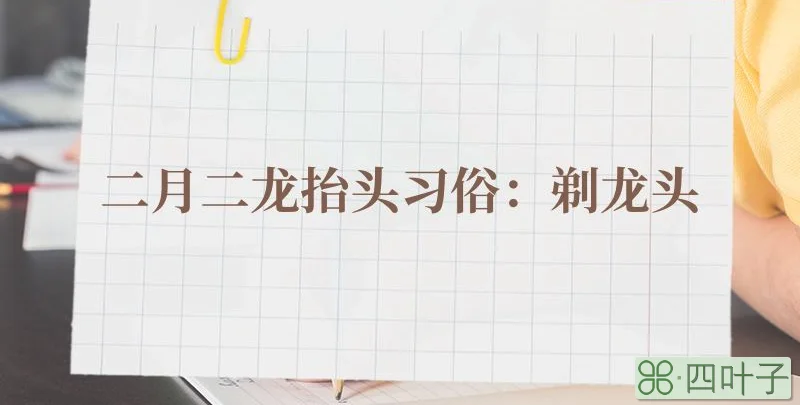 二月二龙抬头习俗：剃龙头
四叶子